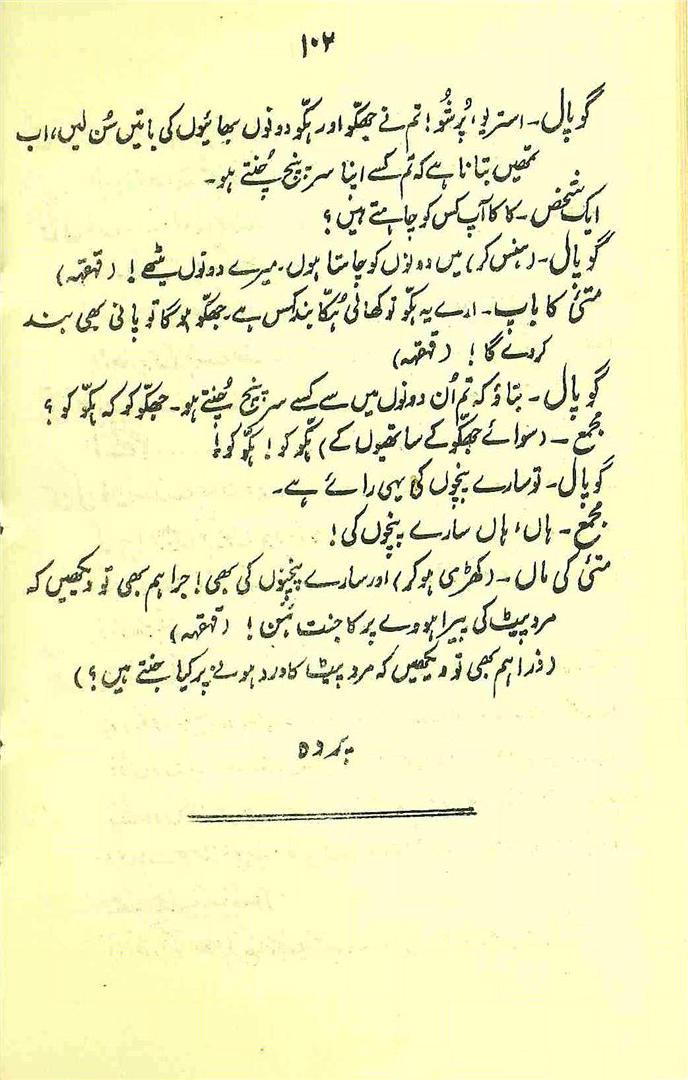 ۱۰۲
گوپال۔ استریو، پُرشو! تم نے جھکّو اور ہکّو دونوں بھائیوں کی باتیں سُن لیں، اب
تمھیں بتانا ہے کہ تم کسے اپنا سرپنچ چُنتے ہو۔
ایک شخص۔ کاکا آپ کس کو چاہتے ہیں؟
گوپال۔ (ہنس کر) میں دونوں کو چاہتا ہوں۔ میرے دونوں بیٹھے! (قہقہہ)
متیٔ کا باپ۔ ارے یہ ہکّو تو کھالی ہُکا بند کس ہے۔ جھکّو ہوگا تو پانی بھی بند
کر دے گا! (قہقہہ)
گوپال۔ بتاؤ کہ تم اُن دونوں میں سے کسے سرپنچ چُنتے ہو۔ جھکّو کو کہ ہکّو کو؟
مجمع۔ (سوائے جھکّو کے ساتھیوں کے) ہکّو کو! ہکّو کو!
گوپال۔ تو سارے پنچوں کی یہی رائے ہے۔
مجمع۔ ہاں، ہاں سارے پنچوں کی!
متیٔ کی ماں۔ (کھڑی ہوکر) اور سارے پنچنوں کی بھی! جرا ہم بھی تو دیکھیں کہ
مرد پیٹ کی پیرا ہووے پر کا جنت ہَن! (قہقہہ)
(ذرا ہم بھی تو دیکھیں کہ مرد پیٹ کا درد ہونے پر کیا جنتے ہیں؟)
پردہ